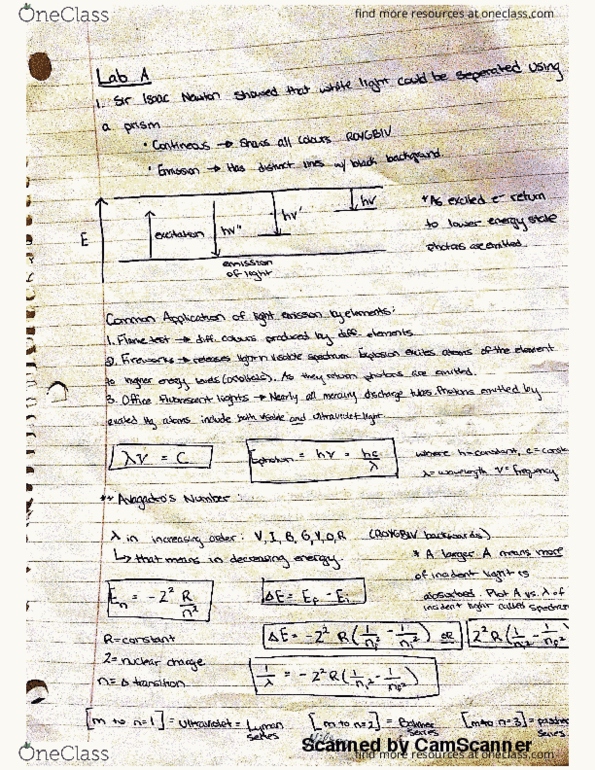 OneClass
find more resources at oneclass.com
Lab A
1. Sir Isaac Newton showed that white light could be seperated using
a prism
• Continuous → Shows all colours ROYGBIV
• Emission → Has distinct lines w/ black background.
E
excitation
hν"
hν'
hν
emission
of light
*As excited e⁻ return
to lower energy state
photons are emitted.
Common Application of light emission by elements:
1. Flame test → diff. colours produced by diff. elements
2. Fireworks → releases light in visible spectrum. Explosion excites atoms of the element
to higher energy levels (orbitals). As they return photons are emitted.
3. Office fluorescent lights → Nearly all mercury discharge tubes. Photons emitted by
excited Hg atoms include both visible and ultraviolet light.
λν = C
Ephoton = hν = hc/λ
where h=constant, c=const
λ=wavelength ν=frequency
** Avagadro's Number:
λ in increasing order: V, I, B, G, Y, O, R (ROYGBIV backwards)
↳ that means in decreasing energy.
* A larger A means more
of incident light is
absorbed. Plot A vs. λ of
incident light called spectrum
En = -Z² R/n²
ΔE = Ef - Ei
ΔE = -Z² R(1/nf² - 1/ni²) OR Z²R(1/ni² - 1/n
R=constant
Z=nuclear charge
n=Δ transition
1/λ = -Z² R(1/ni² - 1/nf²)
[m to n=1] = Ultraviolet = Lyman series
[m to n=2] = Balmer series
[m to n=3] = paschen series
Scanned by CamScanner
OneClass
find more resources at oneclass.com